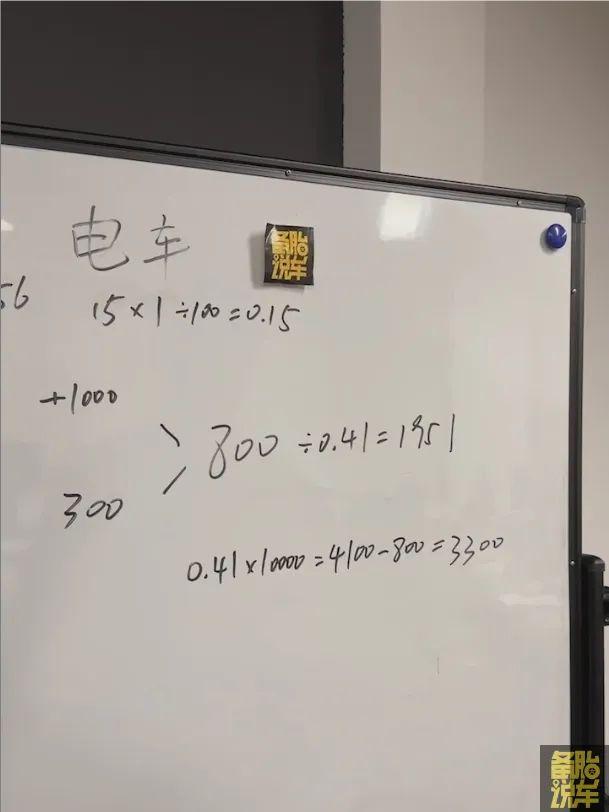 电车
备胎
说车
56
15×1÷100=0.15
+1000
800÷0.41=1951
300
0.41×10000=4100-800=3300
备胎
说车